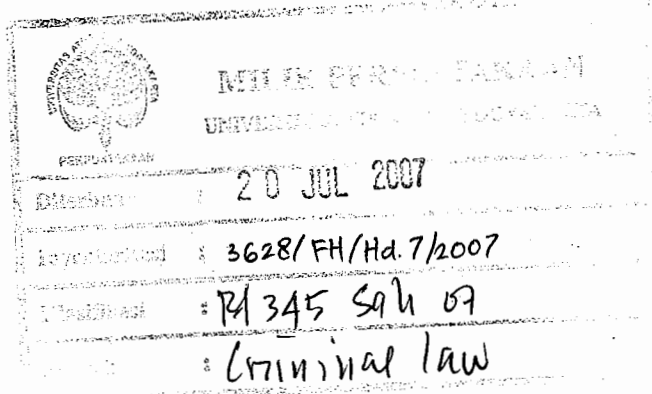 MILIK PERPUSTAKAAN
UNIVERSITAS
PERPUSTAKAAN
Diterima : 20 JUL 2007
Inventarisasi : 3628/FH/Hd.7/2007
Klasifikasi : 345 Sah 07
: Criminal law